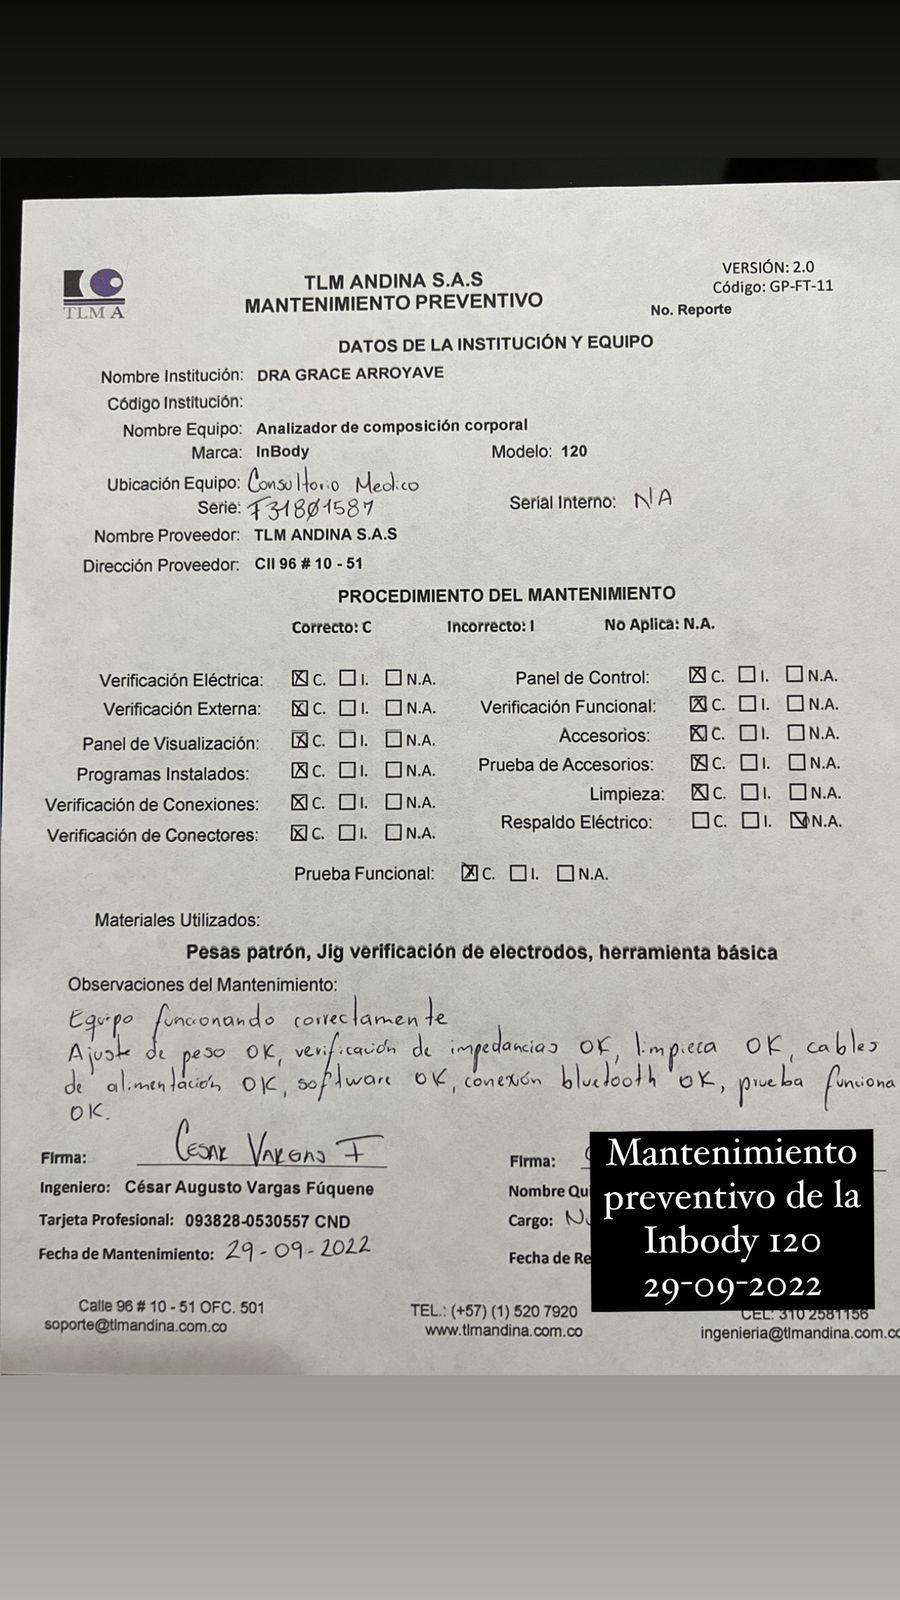 TLMA
TLM ANDINA S.A.S
MANTENIMIENTO PREVENTIVO
VERSIÓN: 2.0
Código: GP-FT-11
No. Reporte
DATOS DE LA INSTITUCIÓN Y EQUIPO
Nombre Institución: DRA GRACE ARROYAVE
Código Institución:
Nombre Equipo: Analizador de composición corporal
Marca: InBody Modelo: 120
Ubicación Equipo: Consultorio Medico
Serie: F31801587 Serial Interno: NA
Nombre Proveedor: TLM ANDINA S.A.S
Dirección Proveedor: Cll 96 # 10 - 51
PROCEDIMIENTO DEL MANTENIMIENTO
Correcto: C Incorrecto: I No Aplica: N.A.
Verificación Eléctrica: ☒ C. ☐ I. ☐ N.A. Panel de Control: ☒ C. ☐ I. ☐ N.A.
Verificación Externa: ☒ C. ☐ I. ☐ N.A. Verificación Funcional: ☒ C. ☐ I. ☐ N.A.
Panel de Visualización: ☒ C. ☐ I. ☐ N.A. Accesorios: ☒ C. ☐ I. ☐ N.A.
Programas Instalados: ☒ C. ☐ I. ☐ N.A. Prueba de Accesorios: ☒ C. ☐ I. ☐ N.A.
Verificación de Conexiones: ☒ C. ☐ I. ☐ N.A. Limpieza: ☒ C. ☐ I. ☐ N.A.
Verificación de Conectores: ☒ C. ☐ I. ☐ N.A. Respaldo Eléctrico: ☐ C. ☐ I. ☒ N.A.
Prueba Funcional: ☒ C. ☐ I. ☐ N.A.
Materiales Utilizados:
Pesas patrón, Jig verificación de electrodos, herramienta básica
Observaciones del Mantenimiento:
Equipo funcionando correctamente
Ajuste de peso OK, verificación de impedancias OK, limpieca OK, cables
de alimentación OK, software OK, conexión bluetooth OK, prueba funciona
OK.
Firma: Cesar Vargas F
Ingeniero: César Augusto Vargas Fúquene
Tarjeta Profesional: 093828-0530557 CND
Fecha de Mantenimiento: 29-09-2022
Firma:
Nombre Qui
Cargo:
Fecha de Re
Mantenimiento
preventivo de la
Inbody 120
29-09-2022
Calle 96 # 10 - 51 OFC. 501 TEL.: (+57) (1) 520 7920 CEL: 310 2581156
soporte@tlmandina.com.co www.tlmandina.com.co ingenieria@tlmandina.com.co